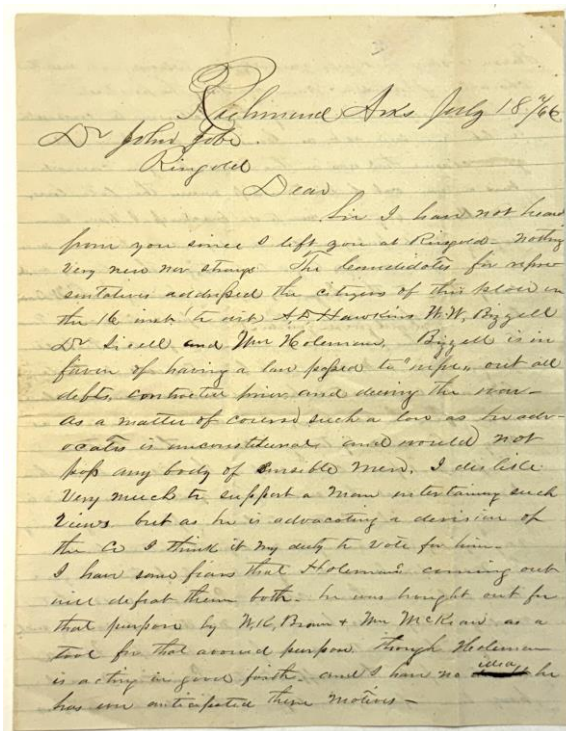 Richmond Arks July 18th/66
Dr John Gobe.
Ringold
Dear
Sir I have not heard
from you since I left you at Ringold - Nothing
very new nor strange The Candidates for repre
sentatives addressed the citizens of this place on
the 16 inst. to wit A D Hawkins W.W. Bizzell
Dr Sizell and Wm Holeman. Bizzell is in
favor of having a law passed to "wipe" out all
debts, contracted prior, and during the war -
As a matter of course such a law as he adv-
ocates is unconstitutional and would not
pass any body of sensible men. I dislike
very much to support a man entertaining such
views but as he is advocating a division of
the Co I think it my duty to vote for him -
I have some fears that Holeman's coming out
will defeat them both. he was brought out for
that purpose by W.K. Brown & Wm McKean as a
tool for that avowed purpose though Holeman
is acting in good faith. and I have no idea he
has ever anticipated these motives -